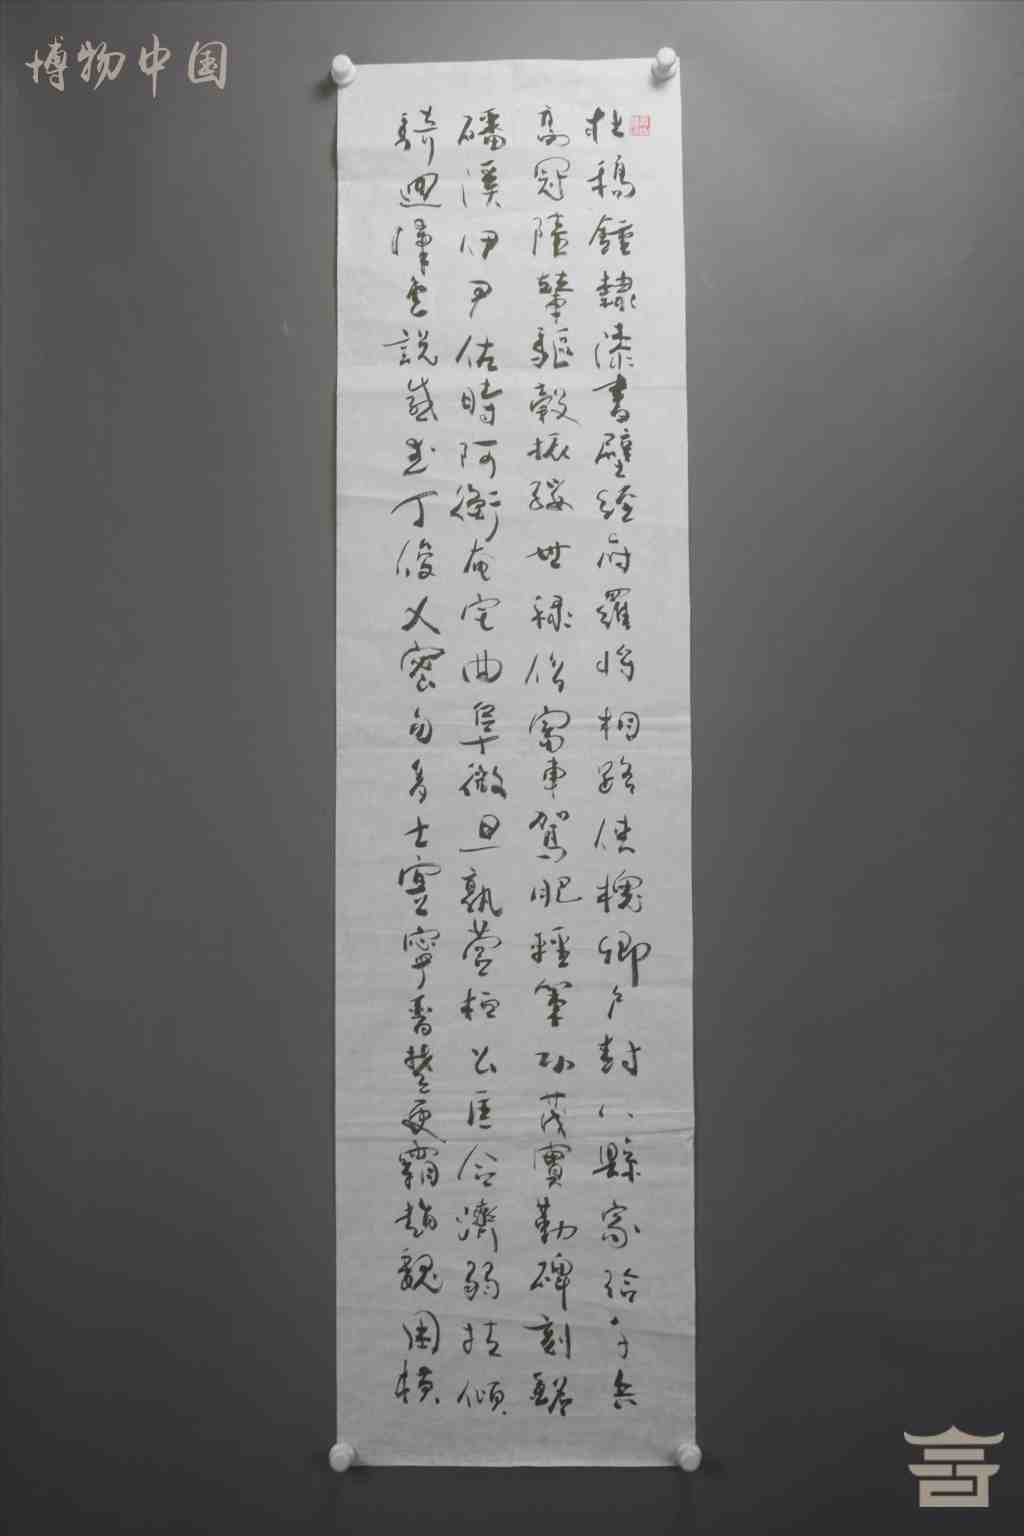 博物中国
杜稿鍾隸漆書壁經府羅將相路俠槐卿戶封八縣家給千兵
高冠陪輦驅轂振纓世祿侈富車駕肥輕策功茂實勒碑刻銘
磻溪伊尹佐時阿衡奄宅曲阜微旦孰營桓公匡合濟弱扶傾
綺迴漢惠說感武丁俊乂密勿多士寔寧晉楚更霸趙魏困橫